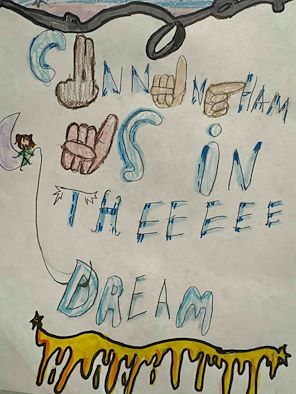 CUNNINGHAM
IS iN
THEEEEEE
DREAM